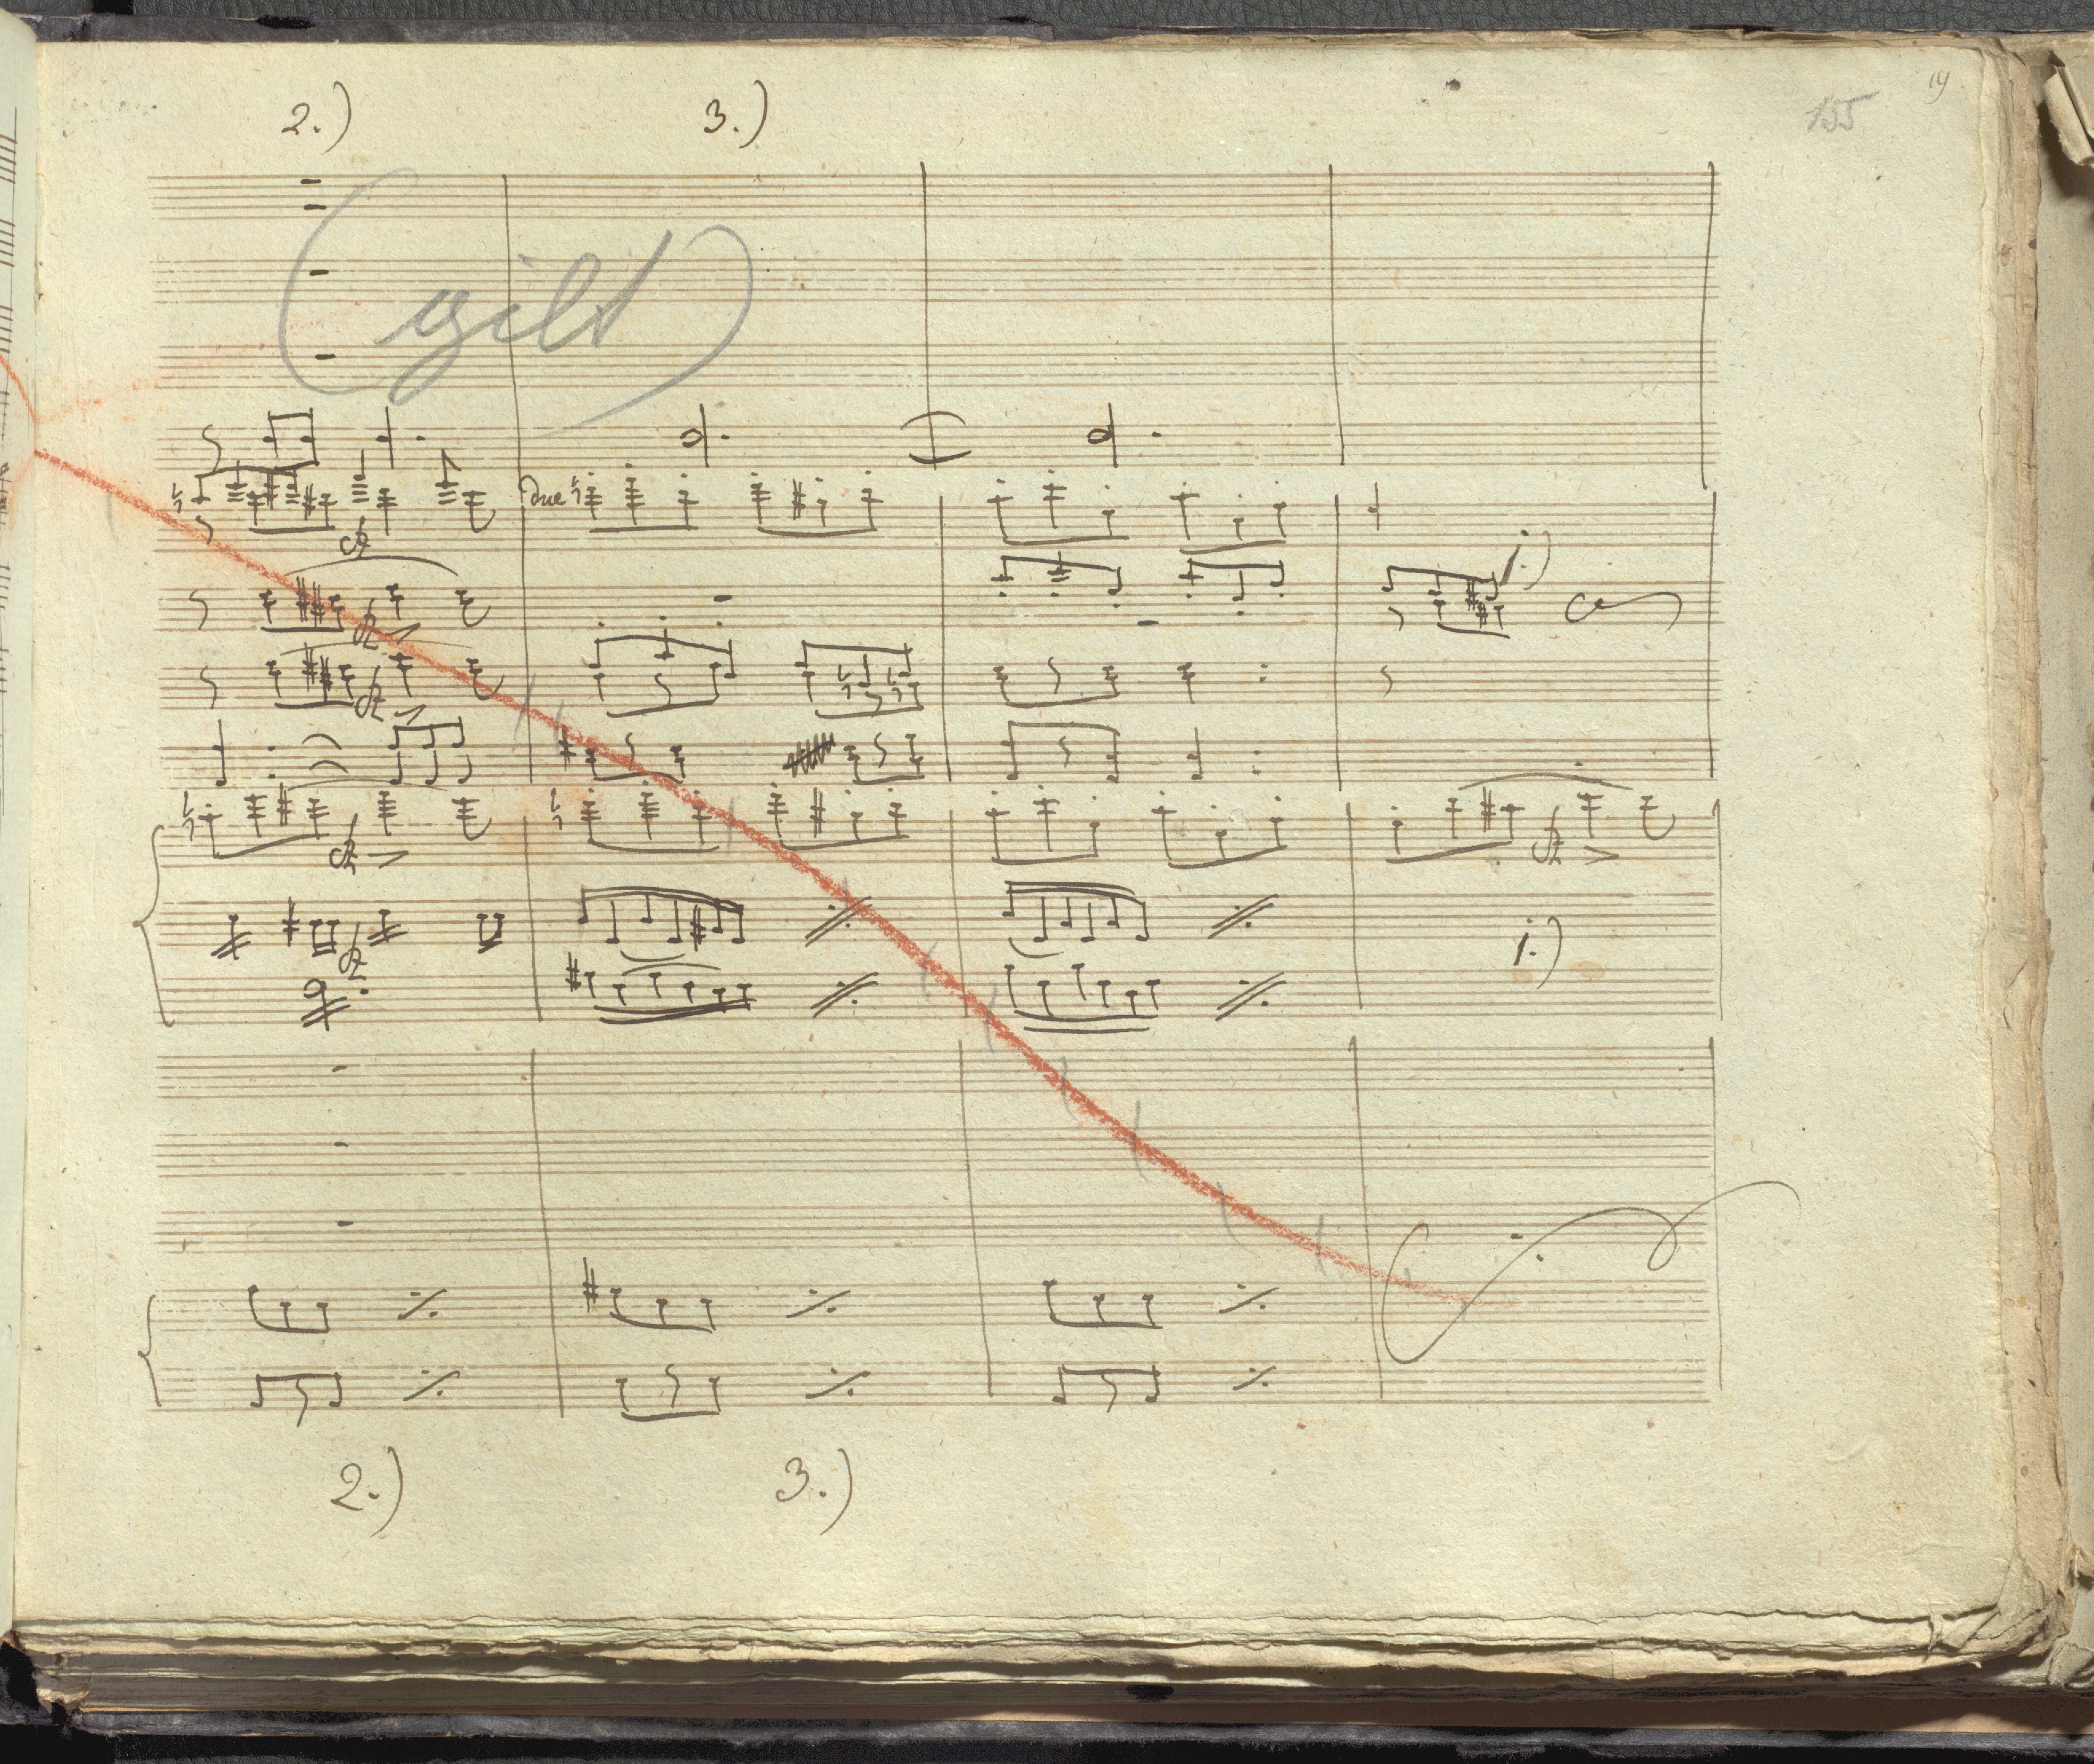 2.) 3.) 155 19
(gilt)
due
1.)
1.)
2.) 3.)